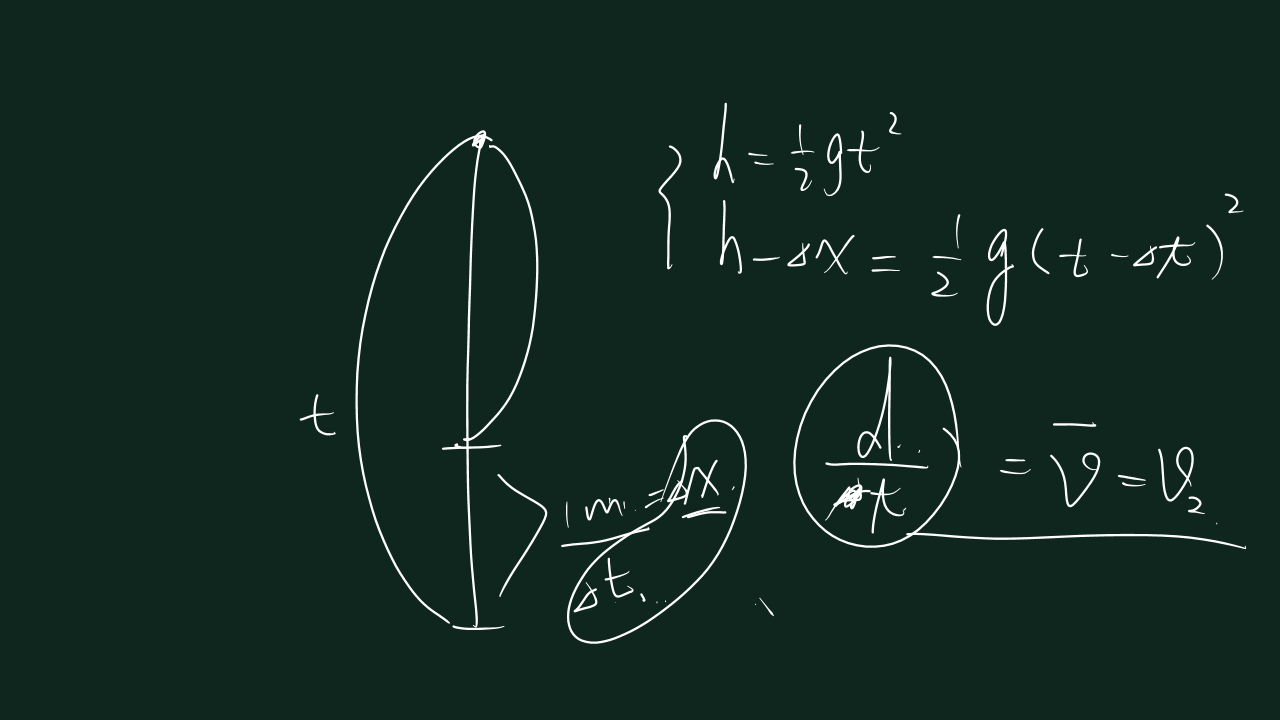 h = 1/2 gt²
h - Δx = 1/2 g (t - Δt)²
t
1m = Δx
Δt
d/t = v̄ = v₂